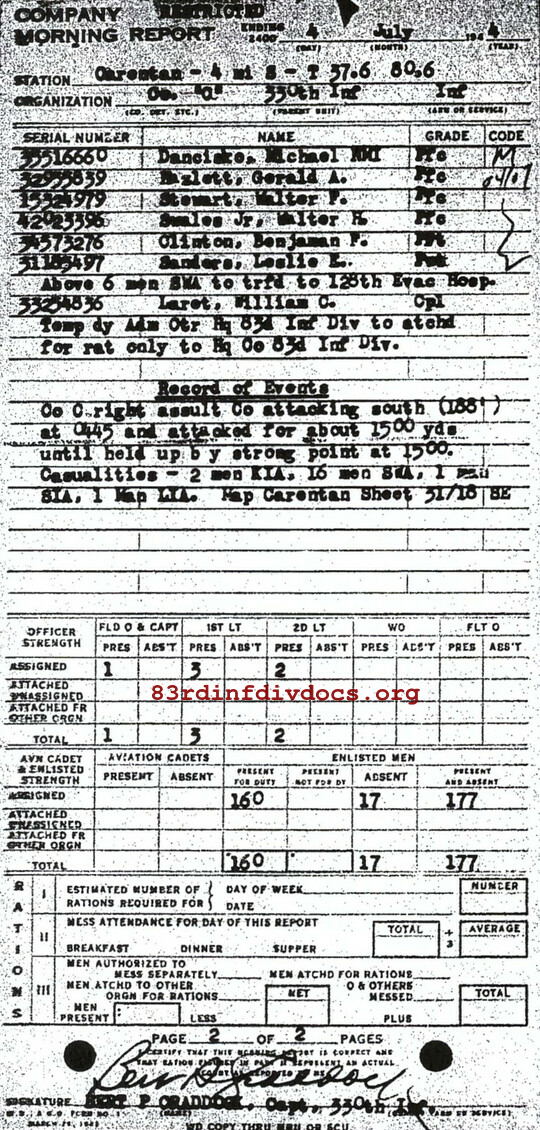 COMPANY RESTRICTED
MORNING REPORT ENDING 2400 4 July 194 4
(DAY) (MONTH) (YEAR)
STATION Carentan - 4 mi S - T 37.6 80.6
ORGANIZATION Co. "C" 330th Inf Inf
(CO. DET. ETC.) (PARENT UNIT) (ARM OR SERVICE)
SERIAL NUMBER NAME GRADE CODE
35516660 Danciske, Michael NMI Pfc M
Hazlett, Gerald A. Pfc
15324979 Stewart, Walter P. Pfc
42023396 Swales Jr, Walter H. Pfc
34573276 Clinton, Benjaman F. Pvt
Sanders, Leslie E. Pvt
Above 6 men SWA to trfd to 128th Evac Hosp.
33254836 Laret, William C. Cpl
Temp dy Adm Ctr Hq 83d Inf Div to atchd
for rat only to Hq Co 83d Inf Div.
Record of Events
Co C right assult Co attacking south (188')
at 0445 and attacked for about 1500 yds
until held up b y strong point at 1500.
Casualities - 2 men KIA, 16 men SWA, 1 man
SIA, 1 Man LIA. Map Carentan Sheet 31/18 SE
OFFICER STRENGTH FLD O & CAPT 1ST LT 2D LT WO FLT O
PRES ABS'T PRES ABS'T PRES ABS'T PRES ABS'T PRES ABS'T
ASSIGNED 1 3 2
ATTACHED UNASSIGNED
83rdinfdivdocs.org
ATTACHED FR OTHER ORGN
TOTAL 1 3 2
AVN CADET & ENLISTED STRENGTH AVIATION CADETS ENLISTED MEN
PRESENT ABSENT PRESENT FOR DUTY PRESENT NOT FOR DY ABSENT PRESENT AND ABSENT
ASSIGNED 160 17 177
ATTACHED UNASSIGNED
ATTACHED FR OTHER ORGN
TOTAL 160 17 177
RATIONS
I ESTIMATED NUMBER OF RATIONS REQUIRED FOR { DAY OF WEEK NUMBER
DATE
II MESS ATTENDANCE FOR DAY OF THIS REPORT TOTAL ÷ 3 AVERAGE
BREAKFAST DINNER SUPPER
III MEN AUTHORIZED TO MESS SEPARATELY MEN ATCHD FOR RATIONS
MEN ATCHD TO OTHER ORGN FOR RATIONS NET O & OTHERS MESSED TOTAL
MEN PRESENT LESS PLUS
PAGE 2 OF 2 PAGES
I CERTIFY THAT THIS MORNING REPORT IS CORRECT AND
SIGNATURE BERT P CRADDOCK, Capt, 330th Inf
W.D., A.G.O. FORM NO. 1 (NAME) (GRADE) (ARM OR SERVICE)
WD COPY THRU MRU OR SCU